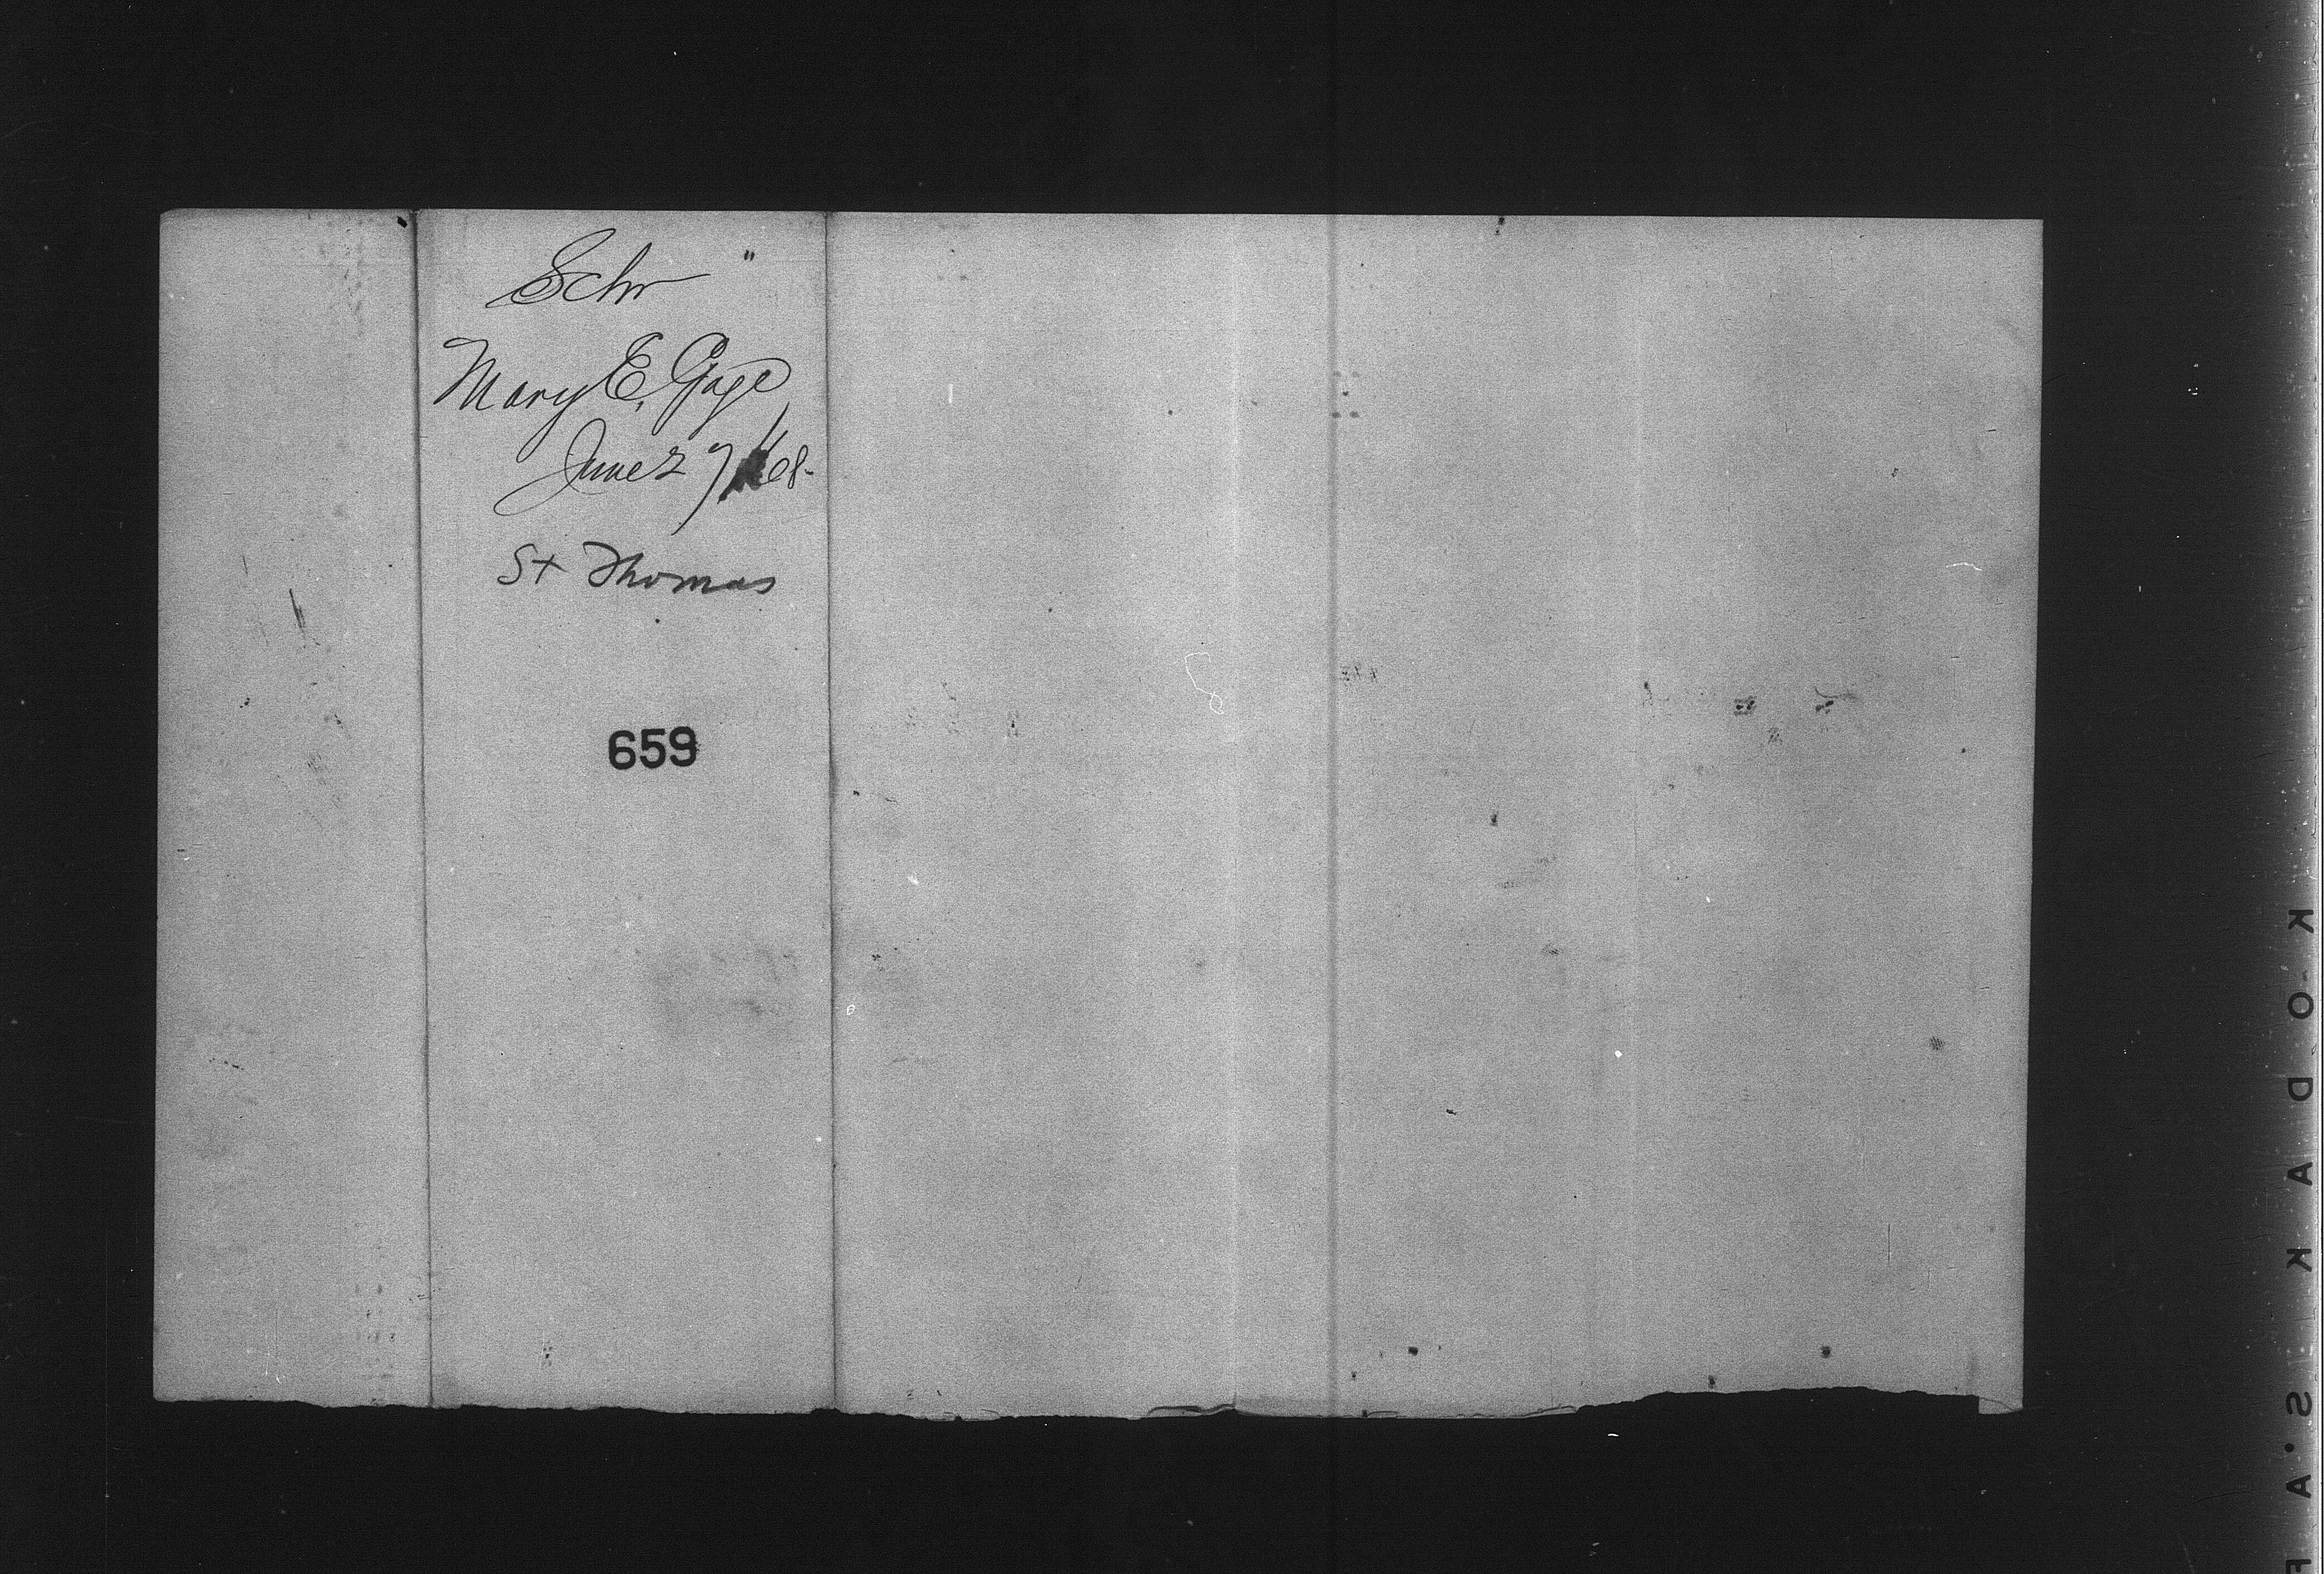 Schr "
Mary E. Gage
June 27/68-
St Thomas
659
KODAK S.A F